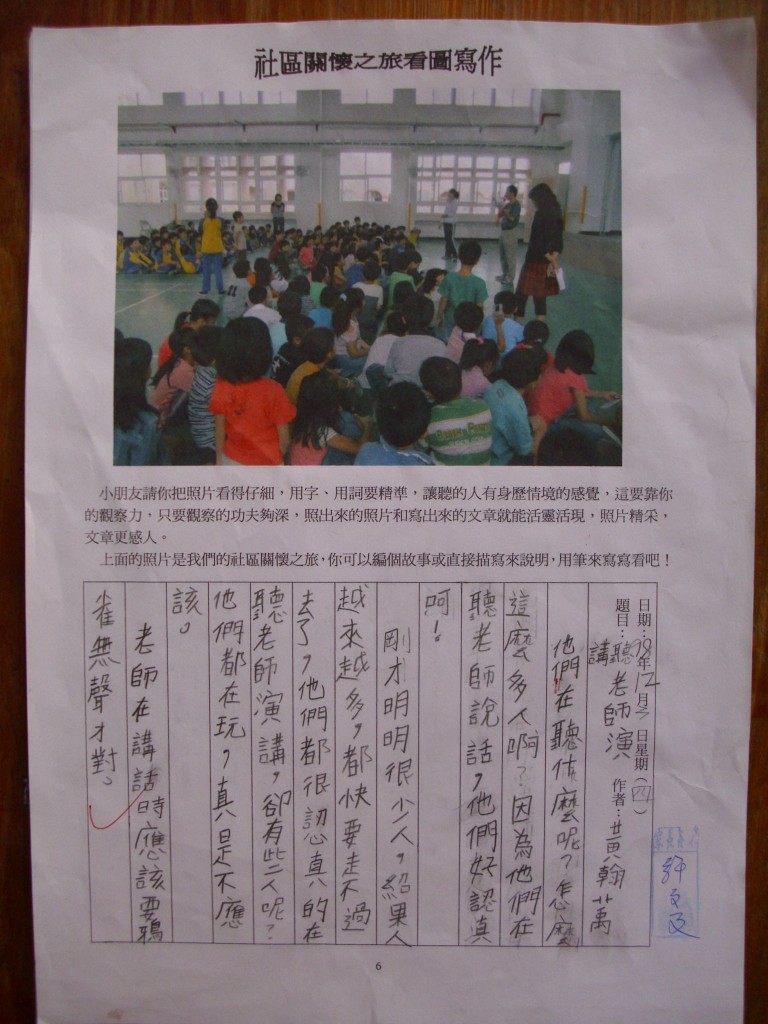 社區關懷之旅看圖寫作
小朋友請你把照片看得仔細，用字、用詞要精準，讓聽的人有身歷情境的感覺，這要靠你
的觀察力，只要觀察的功夫夠深，照出來的照片和寫出來的文章就能活靈活現，照片精采，
文章更感人。
上面的照片是我們的社區關懷之旅，你可以編個故事或直接描寫來說明，用筆來寫寫看吧！
日期：98年12月 日星期（四）
題目：聽老師演講 作者：黃翰萬
他們在聽什麼呢？怎麼
這麼多人啊？因為他們在
聽老師說話，他們好認真
呵！
剛才明明很少人，紹果人
越來越多，都快要走不過
去了，他們都很認真的在
聽老師演講，卻有些人呢？
他們都在玩，真是不應
該。
老師在講話時應該要鴉
雀無聲才對。
6